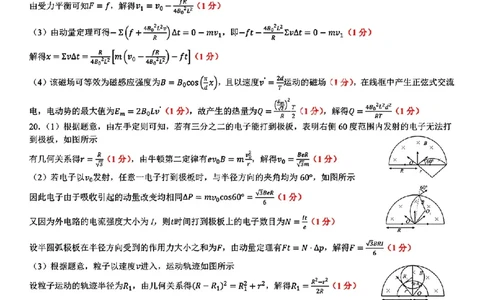 由受力平衡可知F = f，解得v₁ = v₀ − fR/4B₀²L²（1 分）
（3）由动量定理可得−Σ(f + 4B₀²L²v/R)Δt = 0 − mv₁，即−ft − 4B₀²L²/R ΣvΔt = 0 − mv₁（1 分）
解得x = ΣvΔt = R/4B₀²L² [m(v₀ − fR/4B₀²L²) − ft]（1 分）
（4）该磁场可等效为磁感应强度为B = B₀cos(π/d x)，且以速度v' = 2d/T运动的磁场（1 分），在线框中产生正弦式交流
电，电动势的最大值为Eₘ = 2B₀Lv'（1 分），故产生的热量为Q = (Eₘ/√2)²/R T/2（1 分），解得Q = 4B₀²L²d²/RT（1 分）
20.（1）根据题意，由左手定则可知，若有三分之二的电子能打到极板，表明右侧 60 度范围内发射的电子无法打
到极板，如图所示
有几何关系得r = R/√3（1 分），由牛顿第二定律有ev₀B = m v₀²/r，解得v₀ = BeR/√3m（1 分）
（2）若电子以v₀发射，任意一电子打到极板时，与半径方向的夹角均为 60°，如图所示
因此电子由于吸收引起的动量改变均相同ΔP = mv₀cos60° = √3BeR/6（1 分）
又因为外电路的电流强度大小为 I，则t时间打到极板上的电子数目为N = It/e（1 分）
设半圆弧极板在半径方向受到的作用力大小之和为F，由动量定理有Ft = N · Δp，解得F = √3BRI/6（1 分）
（3）根据题意，粒子以速度v进入，运动轨迹如图所示
设粒子运动的轨迹半径为R₁，由几何关系得(R − R₁)² = R₁² + r²，解得R₁ = R²−r²/2R（1 分）